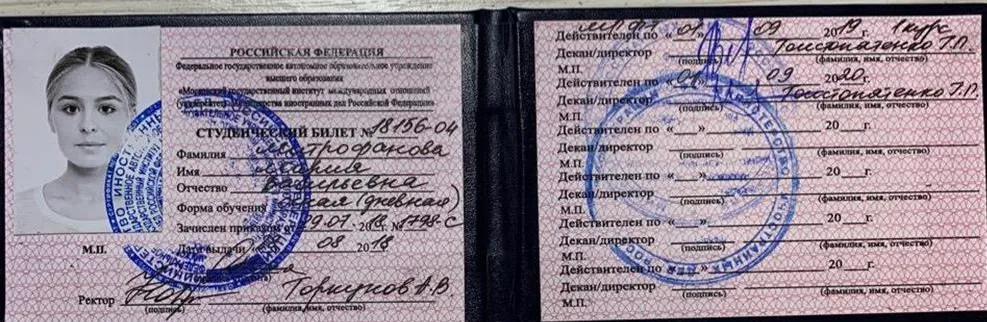 РОССИЙСКАЯ ФЕДЕРАЦИЯ
Федеральное государственное автономное образовательное учреждение
высшего образования
«Московский государственный институт международных отношений
(университет) Министерства иностранных дел Российской Федерации»
СТУДЕНЧЕСКИЙ БИЛЕТ № 18156-04
Фамилия Митрофанова
Имя Мария
Отчество Васильевна
Форма обучения очная (дневная)
Зачислен приказом от 29.07. 2018г. № 1798-С
М.П. Дата выдачи 08 2018
Ректор Торкунов А.В.
(подпись) (фамилия, имя, отчество)
Действителен по «01» 09 2019г. 1 курс
Декан/директор Толстопятенко Г.П.
(подпись) (фамилия, имя, отчество)
М.П.
Действителен по «01» 09 2020г.
Декан/директор Толстопятенко Г.П.
(подпись) (фамилия, имя, отчество)
М.П.
Действителен по «___» 20___г.
Декан/директор
(подпись) (фамилия, имя, отчество)
М.П.
Действителен по «___» 20___г.
Декан/директор
(подпись) (фамилия, имя, отчество)
М.П.
Действителен по «___» 20___г.
Декан/директор
(подпись) (фамилия, имя, отчество)
М.П.
Действителен по «___» 20___г.
Декан/директор
(подпись) (фамилия, имя, отчество)
М.П.